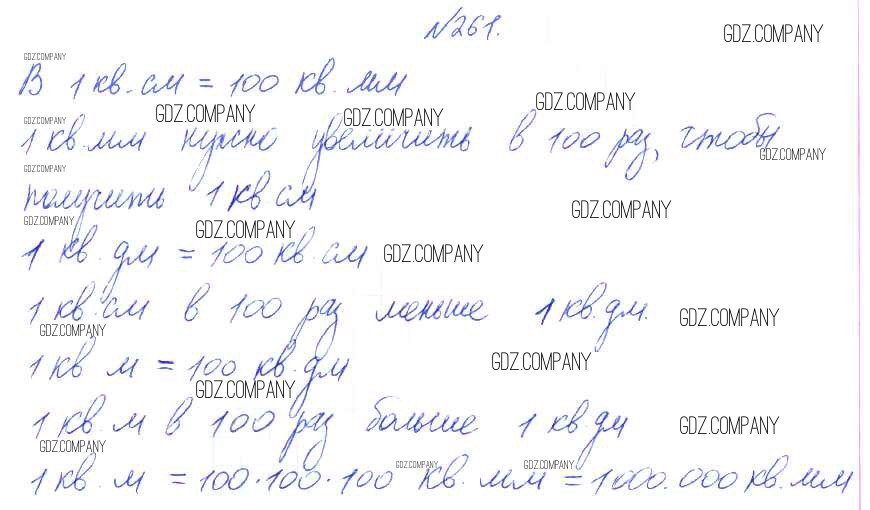 №261.
GDZ.COMPANY
GDZ.COMPANY
В 1 кв.см = 100 кв.мм
GDZ.COMPANY GDZ.COMPANY GDZ.COMPANY GDZ.COMPANY
1 кв.мм нужно увеличить в 100 раз, чтобы
GDZ.COMPANY GDZ.COMPANY
получить 1 кв см
GDZ.COMPANY GDZ.COMPANY GDZ.COMPANY
1 кв. дм = 100 кв. см GDZ.COMPANY
1 кв.см в 100 раз меньше 1 кв.дм. GDZ.COMPANY
GDZ.COMPANY
1 кв м = 100 кв.дм GDZ.COMPANY
GDZ.COMPANY
1 кв. м в 100 раз больше 1 кв дм GDZ.COMPANY
GDZ.COMPANY GDZ.COMPANY GDZ.COMPANY
1 кв. м = 100·100·100 кв. мм = 1000.000 кв.мм